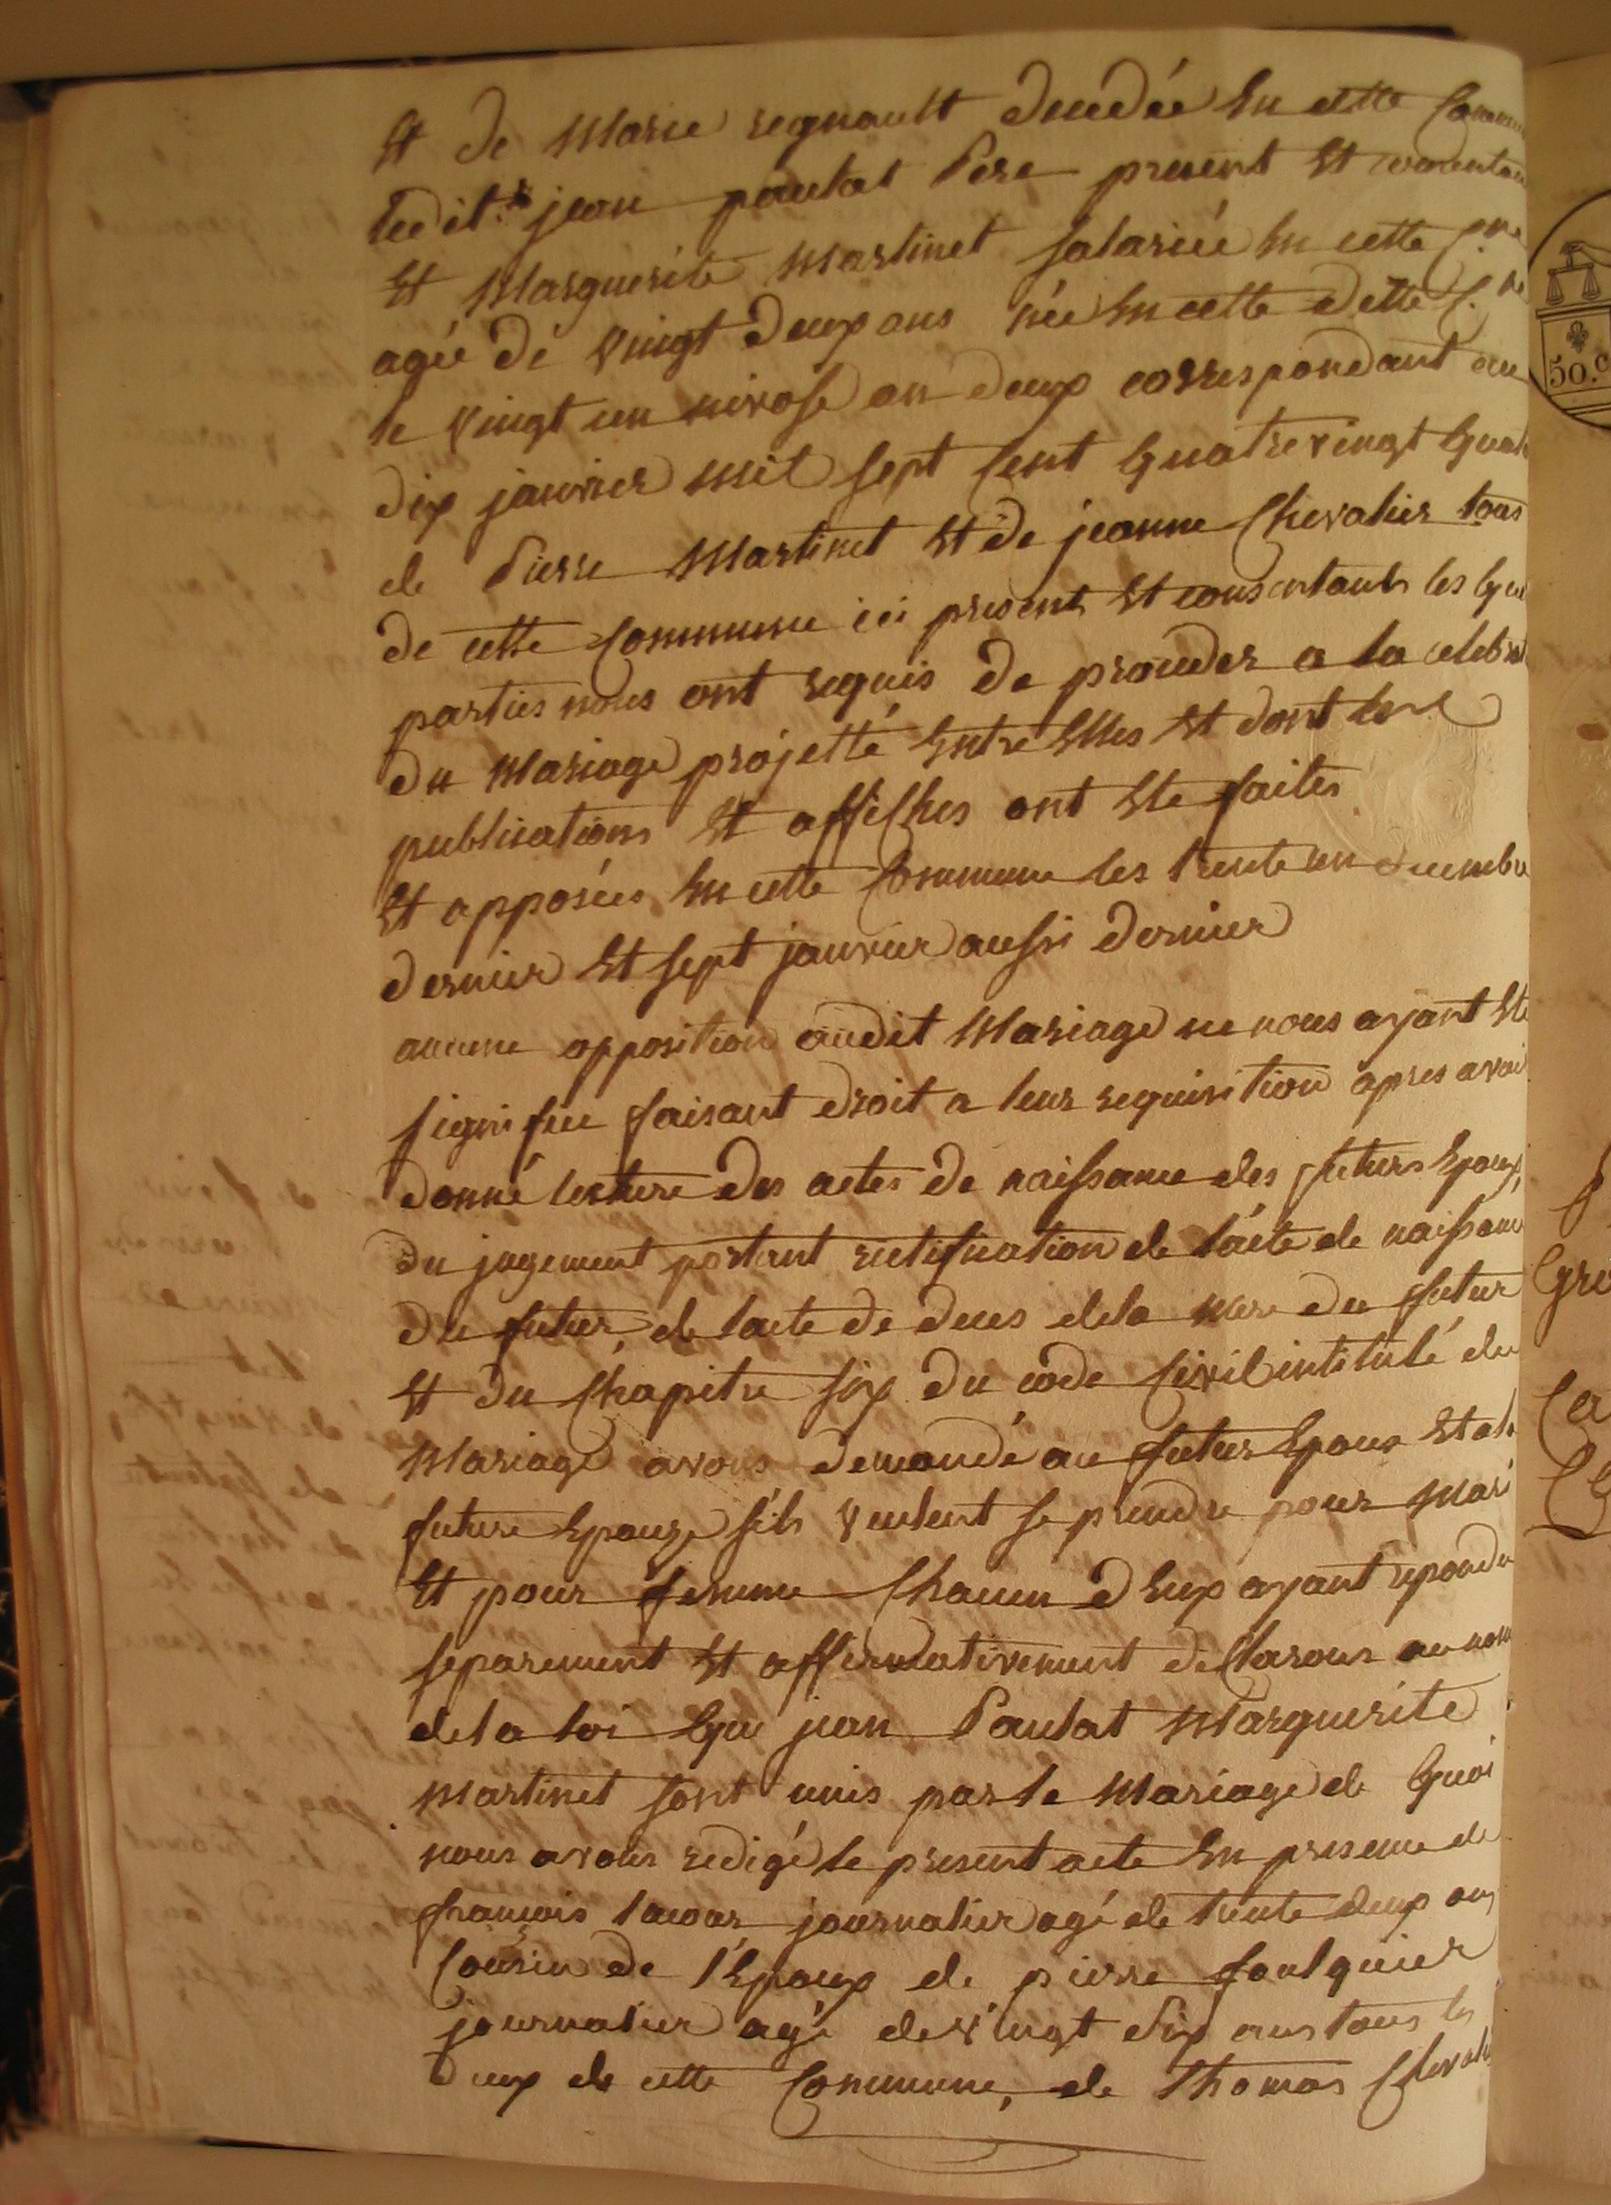 Et de Marie regnault decedée En cette Commune
ledit jean pautat Pere present Et consentant
Et Marguerite Martinet salariée En cette Cne
agée de vingt deux ans née En cette dette C. ne
le vingt un nivose an deux correspondant au
dix janvier mil sept Cent Quatrevingt Quat
de Pierre Martinet Et de jeanne Chevalier tous
de cette Commune ici presents Et consentants les Quel
parties nous ont requis de proceder a la celebrat
du Mariage projetté Entre Elles Et dont les
publications Et affiches ont Ete faites
Et apposées En cette Commune les trente un decembre
dernier Et sept janvier aussi dernier
aucune opposition audit Mariage ne nous ayant Ete
signifiee faisant droit a leur requisition apres avoir
donné lecture des actes de naissance des futurs Epoux,
du jugement portant rectification de l'acte de naissance
du futur, de lacte de deces dela Mere du futur
Et du Chapitre six du code Civil intitulé du
Mariage avons demandé au futur Epoux Et a la
future Epouze s'ils veulent se prendre pour Mari
Et pour femme Chacun d Eux ayant repondu
separement Et affirmativement declarons au nom
dela loi Que jean Pautat Marguerite
Martinet sont unis par le Mariage de Quoi
nous avons redigé le present acte En presence de
françois lacour journalier agé de trente deux ans
Cousin de l'Epoux de pierre foulquier
journalier agé de vingt six ans tous les
deux de cette Commune, de Thomas Chevali
50.c